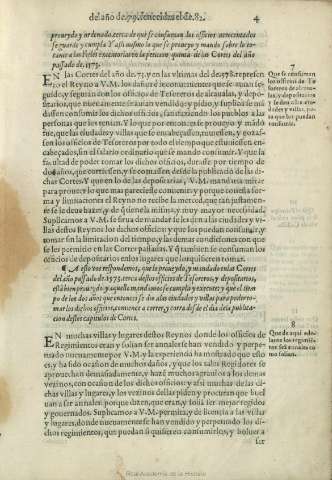 de año de .79. fenecidas el de .82.
4
proueydo y ordenado cerca de que se consuman los officios acrecentados
se guarde y cumpla Y assi mismo lo que se proueyo y mando sobre lo to-
cante a los Fieles executores en la peticion quinta de las Cortes del año
passado de 1573.
EN las Cortes del año de .73. y en las vltimas del de .78. represen
to el Reyno a V.M. los daños e inconuenientes que se han se-
guido, y seguian con los officios de Tesoreros de alcaualas, y depo-
sitarios, que nueuamente se auian vendido; y pidio, y suplico se má
dassen consumir los dichos officios, satisfaziendo los pueblos a las
personas que los tenian. Y lo que por entonces se proueyo y mádò
fue, que las ciudades y villas que se encabeçassen, tuuiessen, y gozas-
sen los officios de Tesoreros por todo el tiempo que estuuiessen en-
cabeçados, sin el salario ordinario que se mando consumir. Y que la
facultad de poder tomar los dichos officios, durasse por tiempo de
dos años, que corriessen, y se contassen desde la publicacion de las di-
chas Cortes. Y que en lo de las depositarias, V.M. mandaria mirar
para proueer lo que mas pareciesse conuenir. y porque con esta for-
ma y limitaciones el Reyno no recibe la merced, que tan justamen-
te se le deue hazer, y de q̃ tiene la misma, y muy mayor necessidad.
Suplicamos a V.M. se sirua de mandar se les den a las ciudades y vi-
llas destos Reynos los dichos officios, y que los puedan consumir, y
tomar sin la limitacion del tiempo, y las demas condiciones con que
se les permitio en las Cortes passadas. Y q̃ tambien se consuman los
officios de depositarios en los lugares que los quisieren tomar.
¶ A esto vos respondemos, que lo proueydo, y mandado en las Cortes
del año passado de 1573. cerca destos officios de Tesoreros, y depositarios,
está bien proueydo: y aquello mandamos se cumpla y execute: y que el tiem
po de los dos años que entonces se dio a las ciudades y villas para poder to-
mar los dichos officios, comience a correr, y corra desde el dia de la publica-
cion destos capitulos de Cortes.
EN muchas villas y lugares destos Reynos donde los officios de
Regimientos eran y solian ser annales se han vendido y perpe-
tuado nueuamente por V.M. y la experiencia ha mostrado que esto
es, y ha sido ocasion de muchos daños, y que los tales Regidores se
aprouechan demasiadamente, y hazé muchos agrauios a los demas
vezinos, con ocasion de los dichos officios: y assi muchas de las di-
chas villas y lugares, y los vezinos dellas piden y procuran que buel
uan a ser annales, porque dizen, que eran, y solia ser mejor regidos
y gouernados. Suplicamos a V.M. permita, y dè licencia a las villas
y lugares, donde nueuamente se han vendido y perpetuado los di-
chos regimientos, que puedan si quisieren consumirlos, y bolueta
ser
7
Que se consumen
los officios de Te
soreros de alcaua-
las, y depositarios
y se den a las ciu-
dades y villas, pa
ra que los puedan
consumir.
8
Que de aqui ade-
lante los regimien
tos sean annales co
mo solian.
Real Academia de la Historia